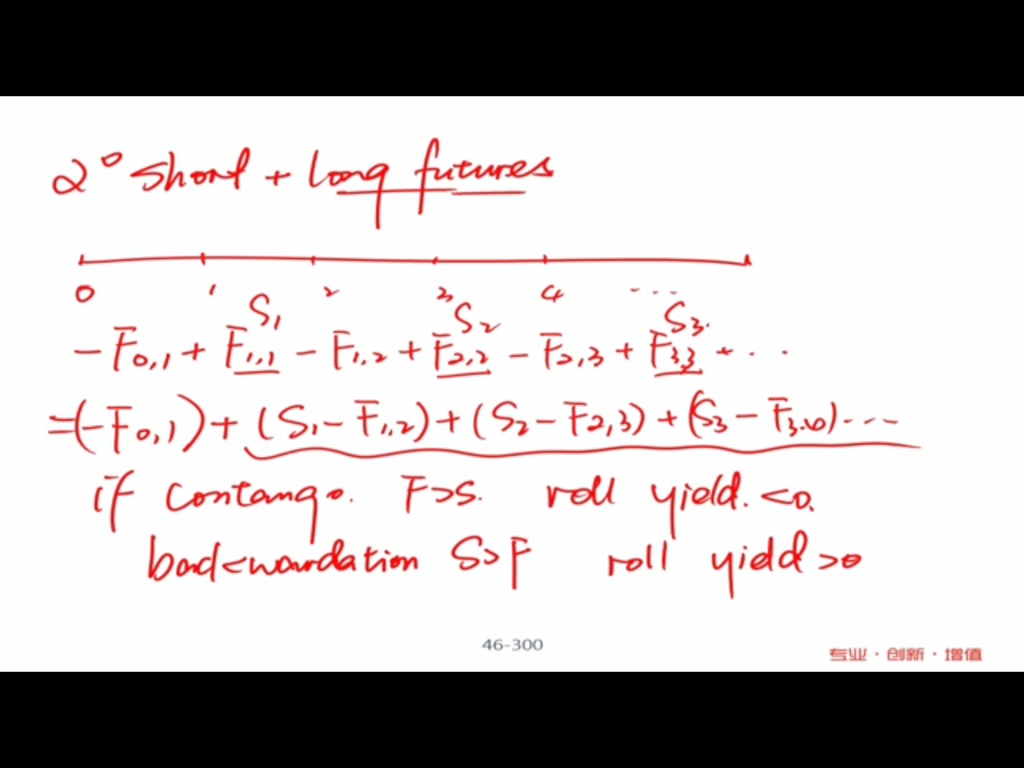 2° Short + long futures
0 1 2 3 4 ...
S₁ S₂ S₃.
- F₀,₁ + F₁,₁ - F₁,₂ + F₂,₂ - F₂,₃ + F₃,₃ + ...
=(-F₀,₁) + (S₁ - F₁,₂) + (S₂ - F₂,₃) + (S₃ - F₃,₆) ...
if contango. F>S. roll yield. <0.
backwardation S>F roll yield >0
46-300
专业·创新·增值